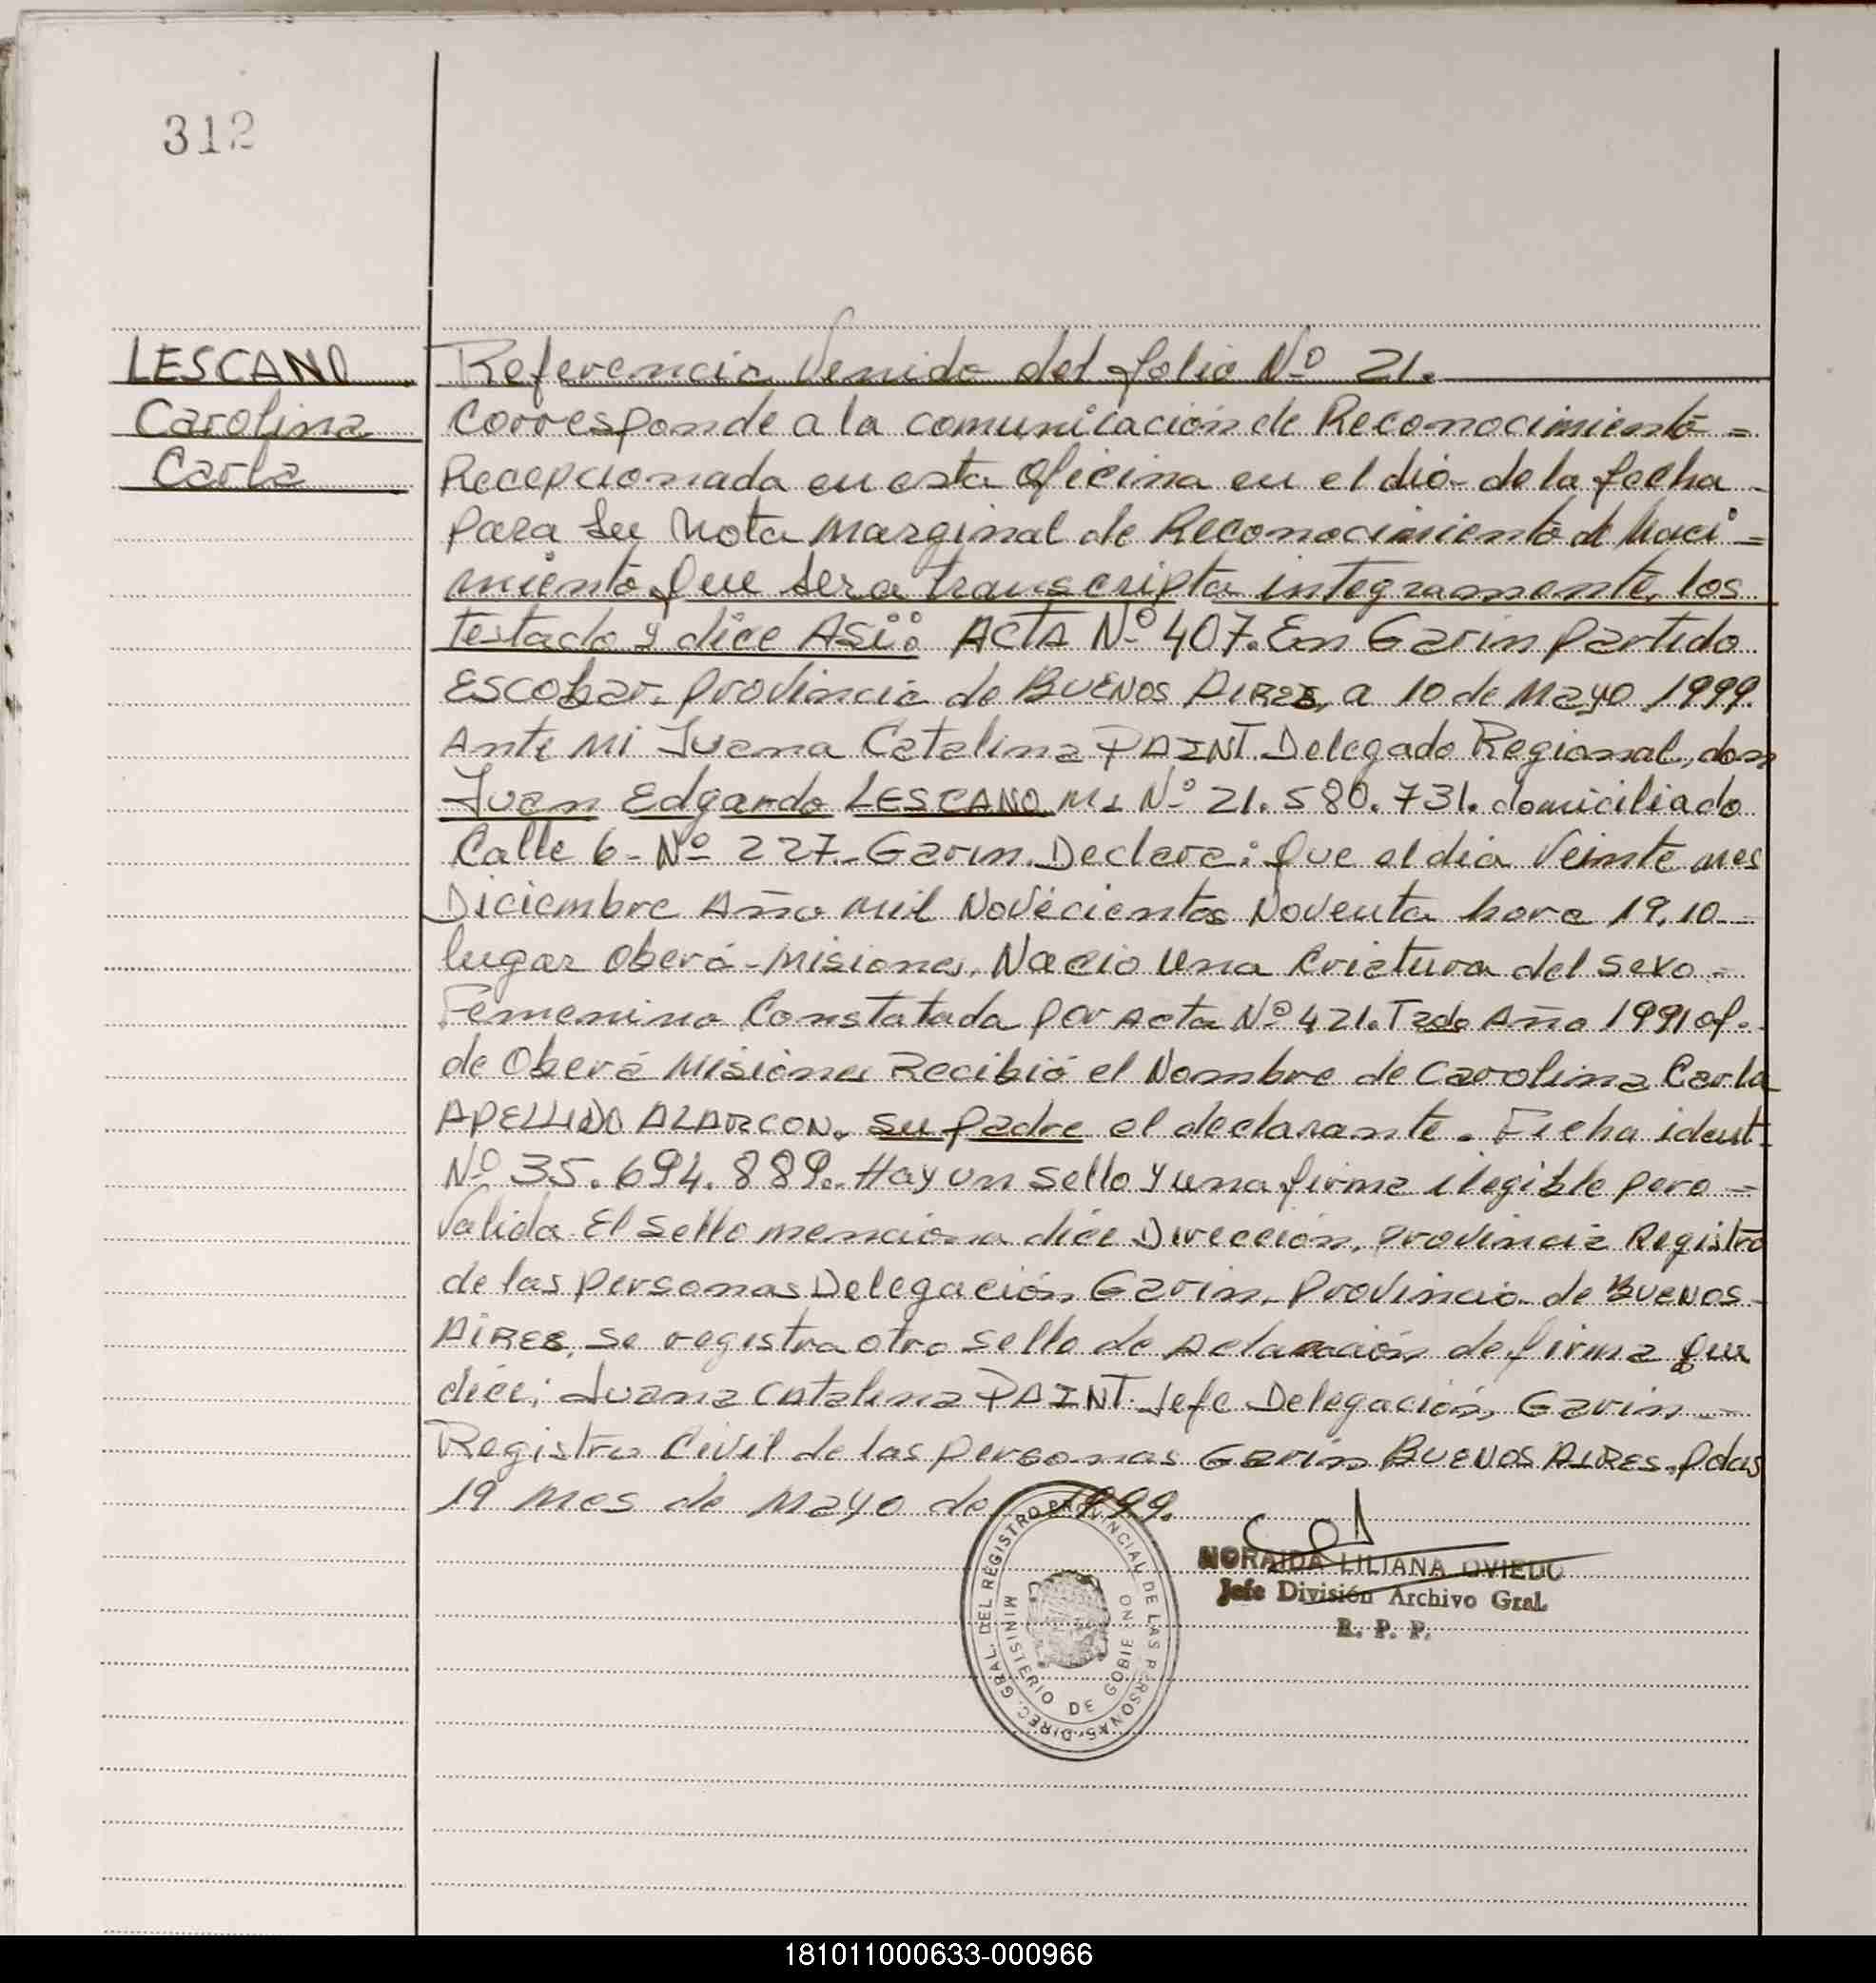 312
LESCANO
Carolina
Carla
Referencia Venido del folio Nº 21.
Corresponde a la comunicación de Reconocimiento =
Recepcionada en esta oficina en el dia de la fecha
para su Nota Marginal de Reconocimiento de Naci =
miento que sera transcripta integramente, los
testado y dice Asi: ACTA Nº 407. En Garin partido
Escobar. provincia de BUENOS AIRES, a 10 de Mayo 1999.
Ante Mi Juana Catalina PAINT Delegado Regional, don
Juan Edgardo LESCANO MI Nº 21.580.731. domiciliado
Calle 6 - Nº 227 - Garin. Declara: Que el dia Veinte mes
Diciembre Año mil Novécientos Noventa hora 19,10
lugar Oberá - Misiones, Nacio una Criatura del sexo =
Femenino Constatada por Acta Nº 421. T2do Año 1991 of.
de Oberá Misiones Recibió el Nombre de Carolina Carla
APELLIDO ALARCON. su padre el declarante. Ficha ident.
Nº 35.694.889. Hay un sello y una firma ilegible pero =
Valida El sello menciona dice Dirección, provincia Registro
de las personas Delegación Garin, Provincia de BUENOS
AIRES, se registra otro sello de Aclaración de firma que
dice; Juana Catalina PAINT Jefe Delegación Garin
Registro Civil de las personas Garin BUENOS AIRES. Pdas
19 Mes de Mayo de 1999.
DIREC. GRAL. DEL REGISTRO PROVINCIAL DE LAS PERSONAS
MINISTERIO DE GOBIERNO
NORAIDA LILIANA OVIEDO
Jefe División Archivo Gral.
R. P. P.
181011000633-000966